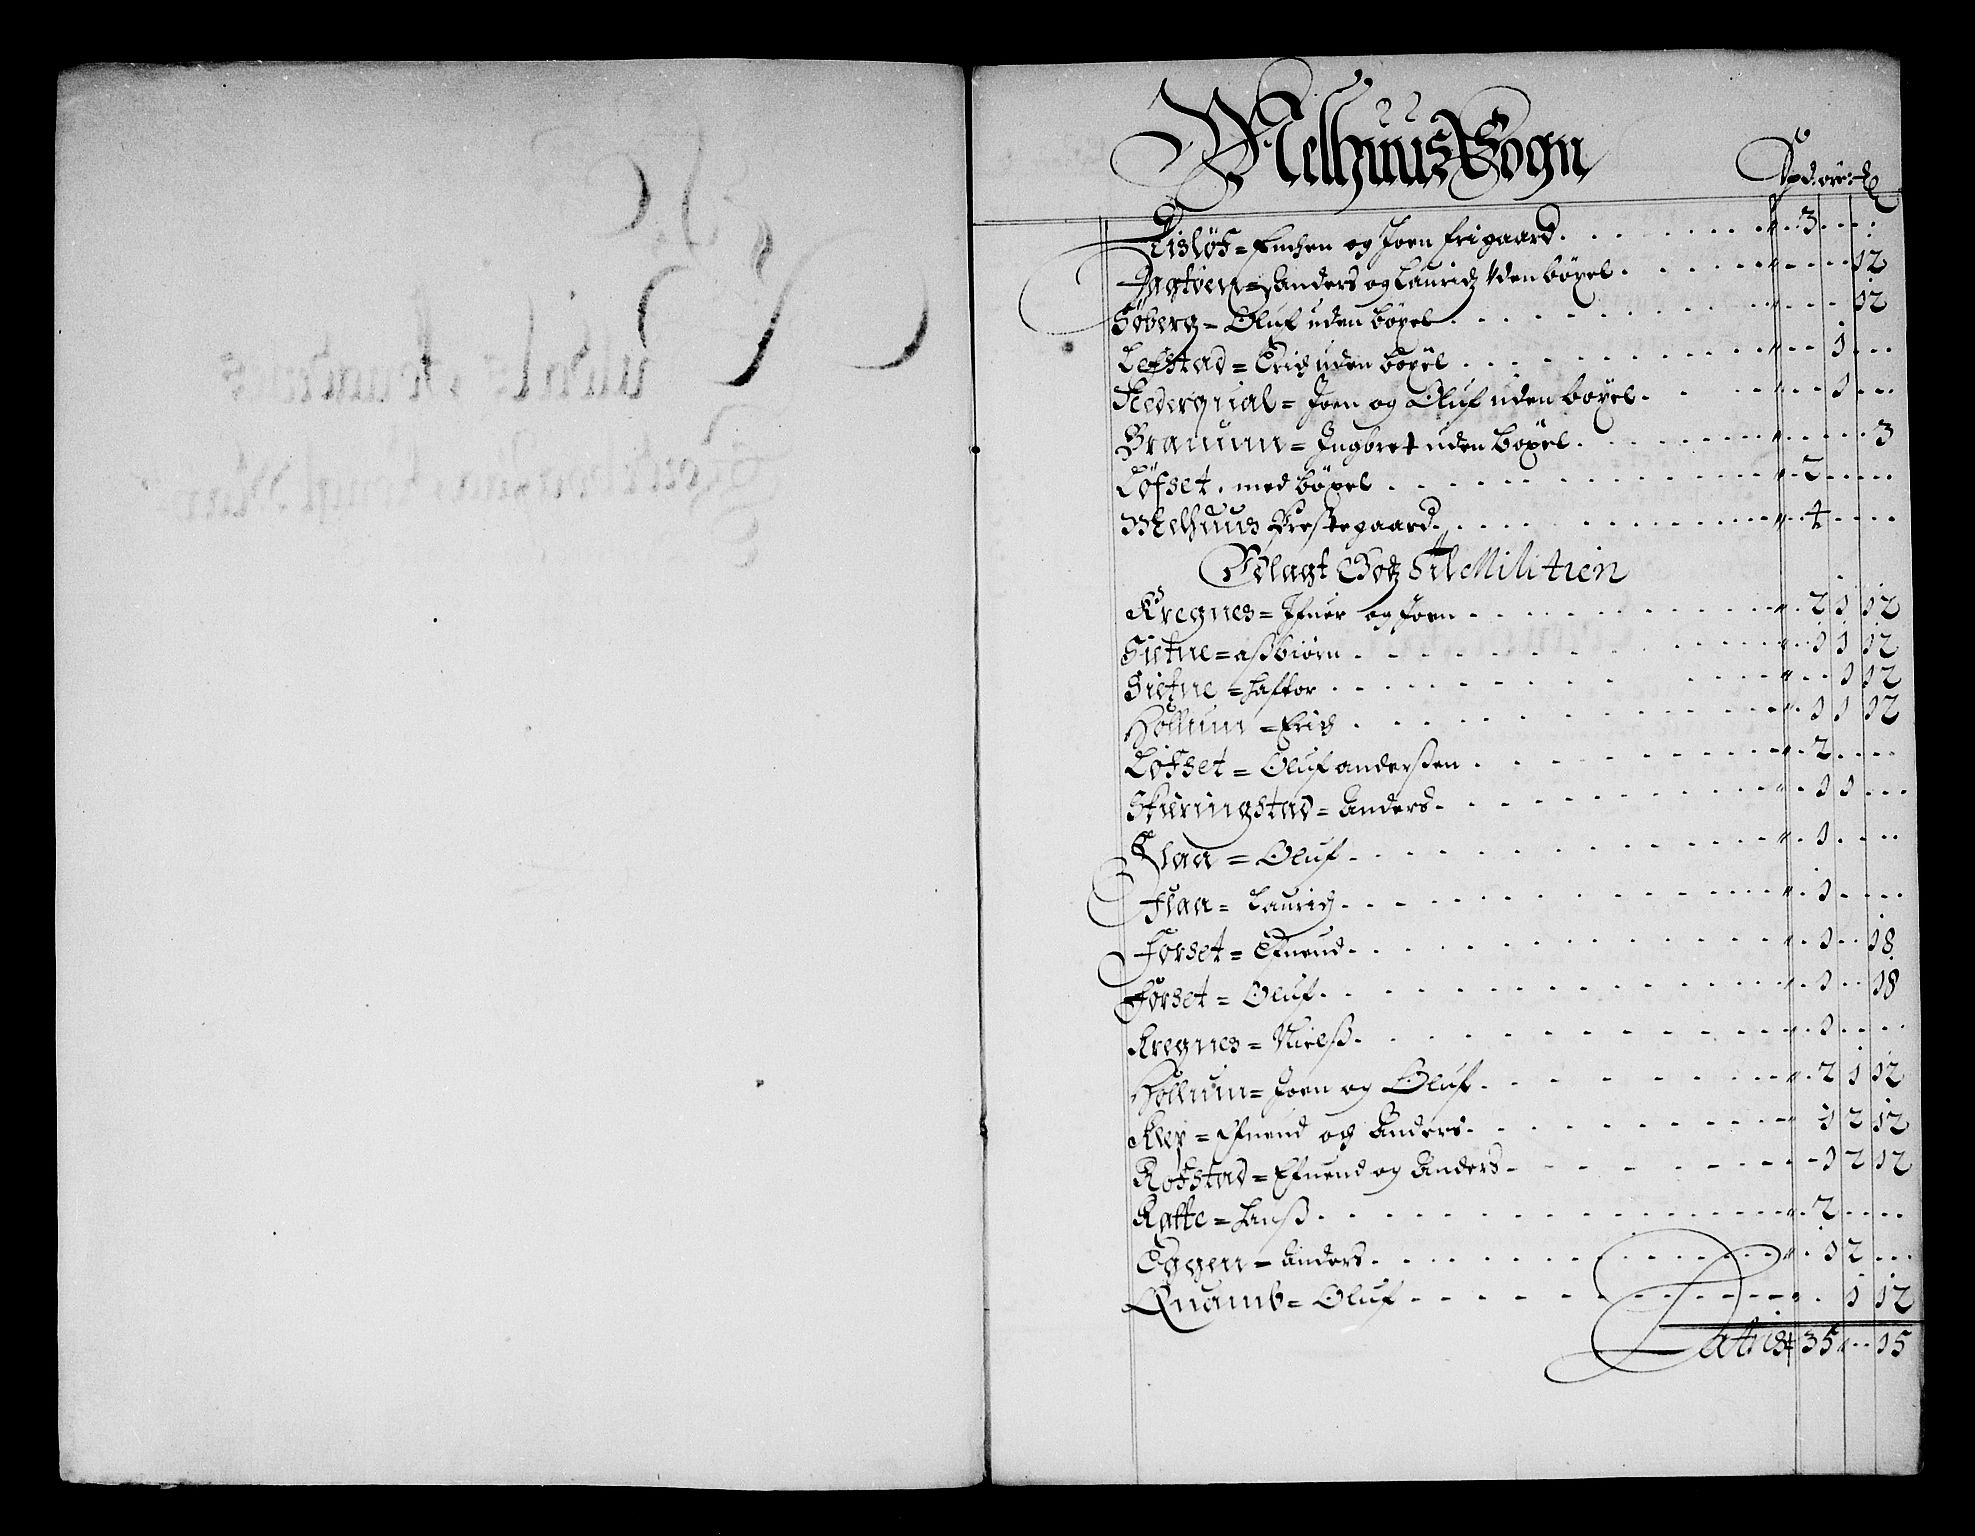 Melhuus Sogn
Spd: ore: ℔
Eisløf = Enchen og Joen Erigaard . . . 3
Jagtøen = Anders og Lauridz uden böxel . . . 12
Søberg = Oluf uden böxel . . . 12
Lefstad = Erich uden böxel . . . 1
Kederqual = Joen og Oluf uden böxel . . . 1
Brauum = Ingbret uden böxel . . . 3
Løfset, med böxel . . . 2
Melhuus Prestegaard . . . 4
Udlagt Godz til Militien
Kregnes = Ifuer og Joen . . . 2 1 12
Sietne = assbiörn . . . 1 1 12
Sietne = Haftor . . . 1 12
Hollum = Erich . . . 1 1 12
Løfset = Oluf anderssen . . . 2
Skieringstad = Anders . . . 1 1
Flaa = Oluf . . . 1
Flaa = Lauridz . . . 1
Forset = Efuend . . . 1 18
Forset = Oluf . . . 1 18
Kregnes = Nielss . . . 1
Hollum = Joen og Oluf . . . 2 1 12
Klep = Efuend og Anders . . . 1 2 12
Rofstad = Efuend og Anders . . . 1 2 12
Kattc = Hanss . . . 2
Eggen = Anders . . . 1 2
Quamb = Oluf . . . 1 12
Latus 35 15